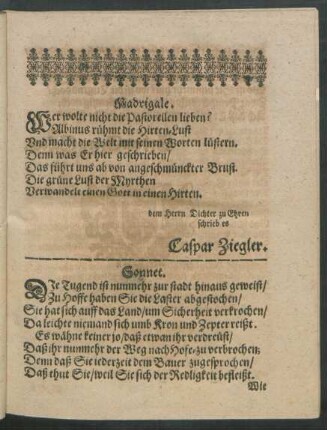 Madrigale.
Wer wolte nicht die Pastorellen lieben?
Albinus rühmt die Hirten-Lust
Vnd macht die Welt mit seinen Worten lüstern.
Denn was Er hier geschrieben/
Das führt uns ab von angeschmünckter Brust.
Die grüne Lust der Myrthen
Verwandele einen Gott in einen Hirten.
dem Herrn Dichter zu Ehren
schrieb es
Caspar Ziegler.
Sonnet.
DIe Tugend ist nunmehr zur stadt hinaus geweist/
Zu Hoffe haben Sie die Laster abgestochen/
Sie hat sich auff das Land/um Sicherheit verkrochen/
Da leichte niemand sich umb Kron und Zepter reißt.
Es wähne keiner jo/daß etwan ihr verdreüst/
Daß ihr nunmehr der Weg nach Hofe/zu verbrochen;
Denn daß Sie jederzeit dem Bauer zugesprochen/
Daß thut Sie/weil Sie sich der Redligkeit befleißt.
Wie